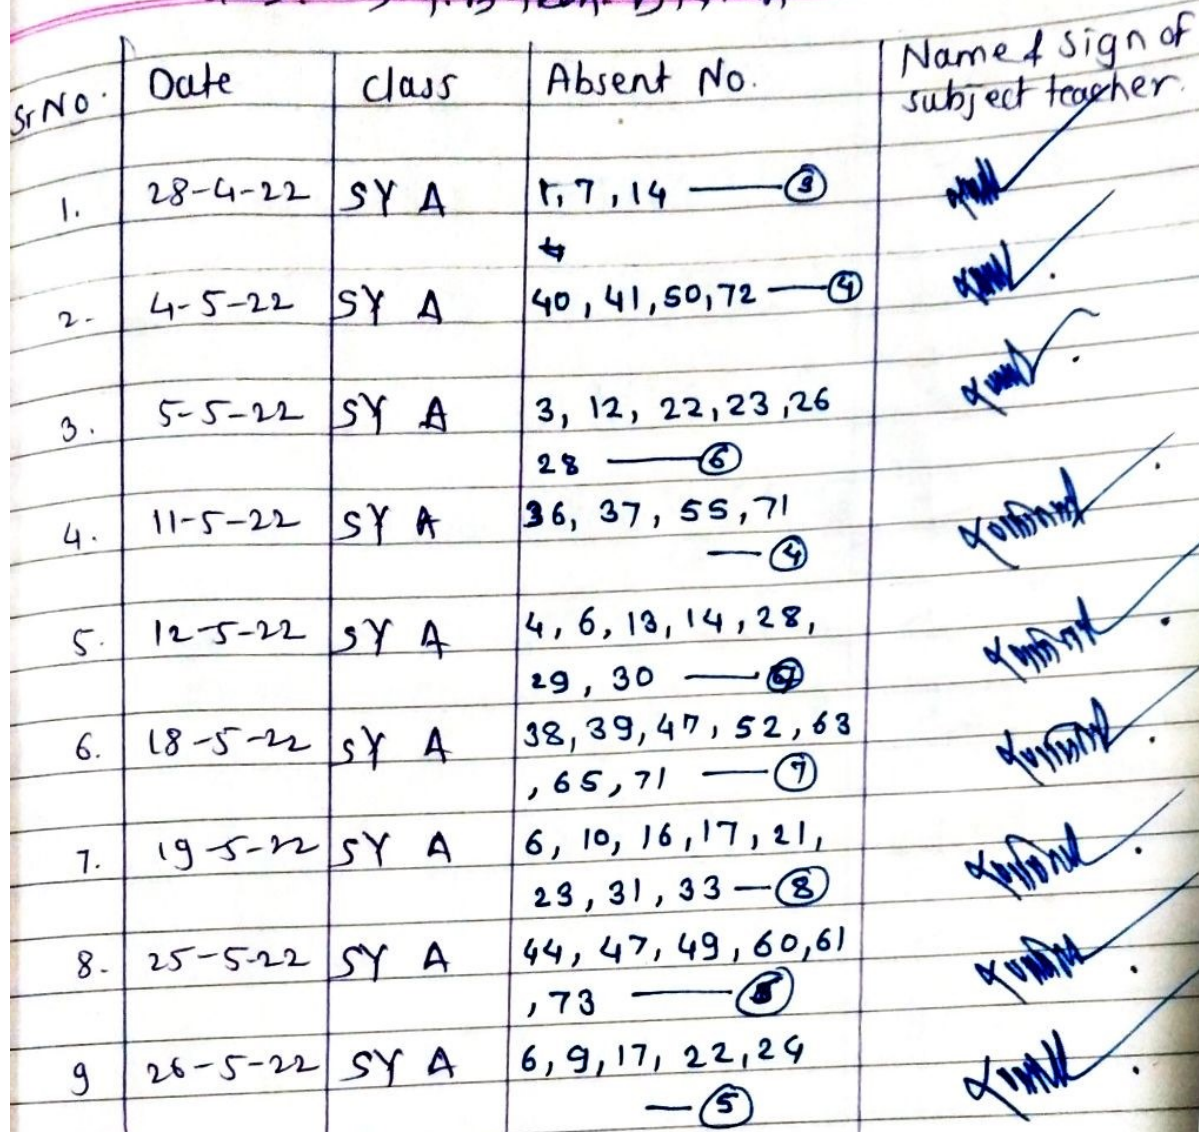 Sr No. Date class Absent No. Name & Sign of
subject teacher.
1. 28-4-22 SY A 1, 7, 14 — 3
2. 4-5-22 SY A 40, 41, 50, 72 — 4
3. 5-5-22 SY A 3, 12, 22, 23, 26
28 — 6
4. 11-5-22 SY A 36, 37, 55, 71
— 4
5. 12-5-22 SY A 4, 6, 13, 14, 28,
29, 30 —
6. 18-5-22 SY A 38, 39, 47, 52, 63
, 65, 71 — 7
7. 19-5-22 SY A 6, 10, 16, 17, 21,
23, 31, 33 — 8
8. 25-5-22 SY A 44, 47, 49, 60, 61
, 73 —
9 26-5-22 SY A 6, 9, 17, 22, 24
— 5